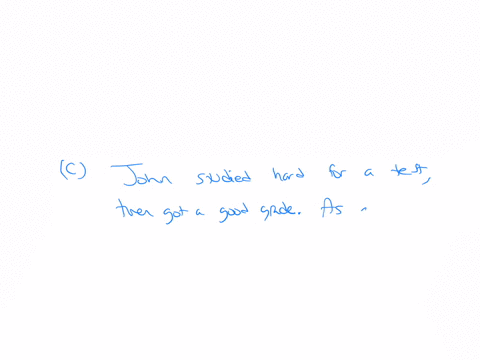 (C) John studied hard for a test,
then got a good grade. As